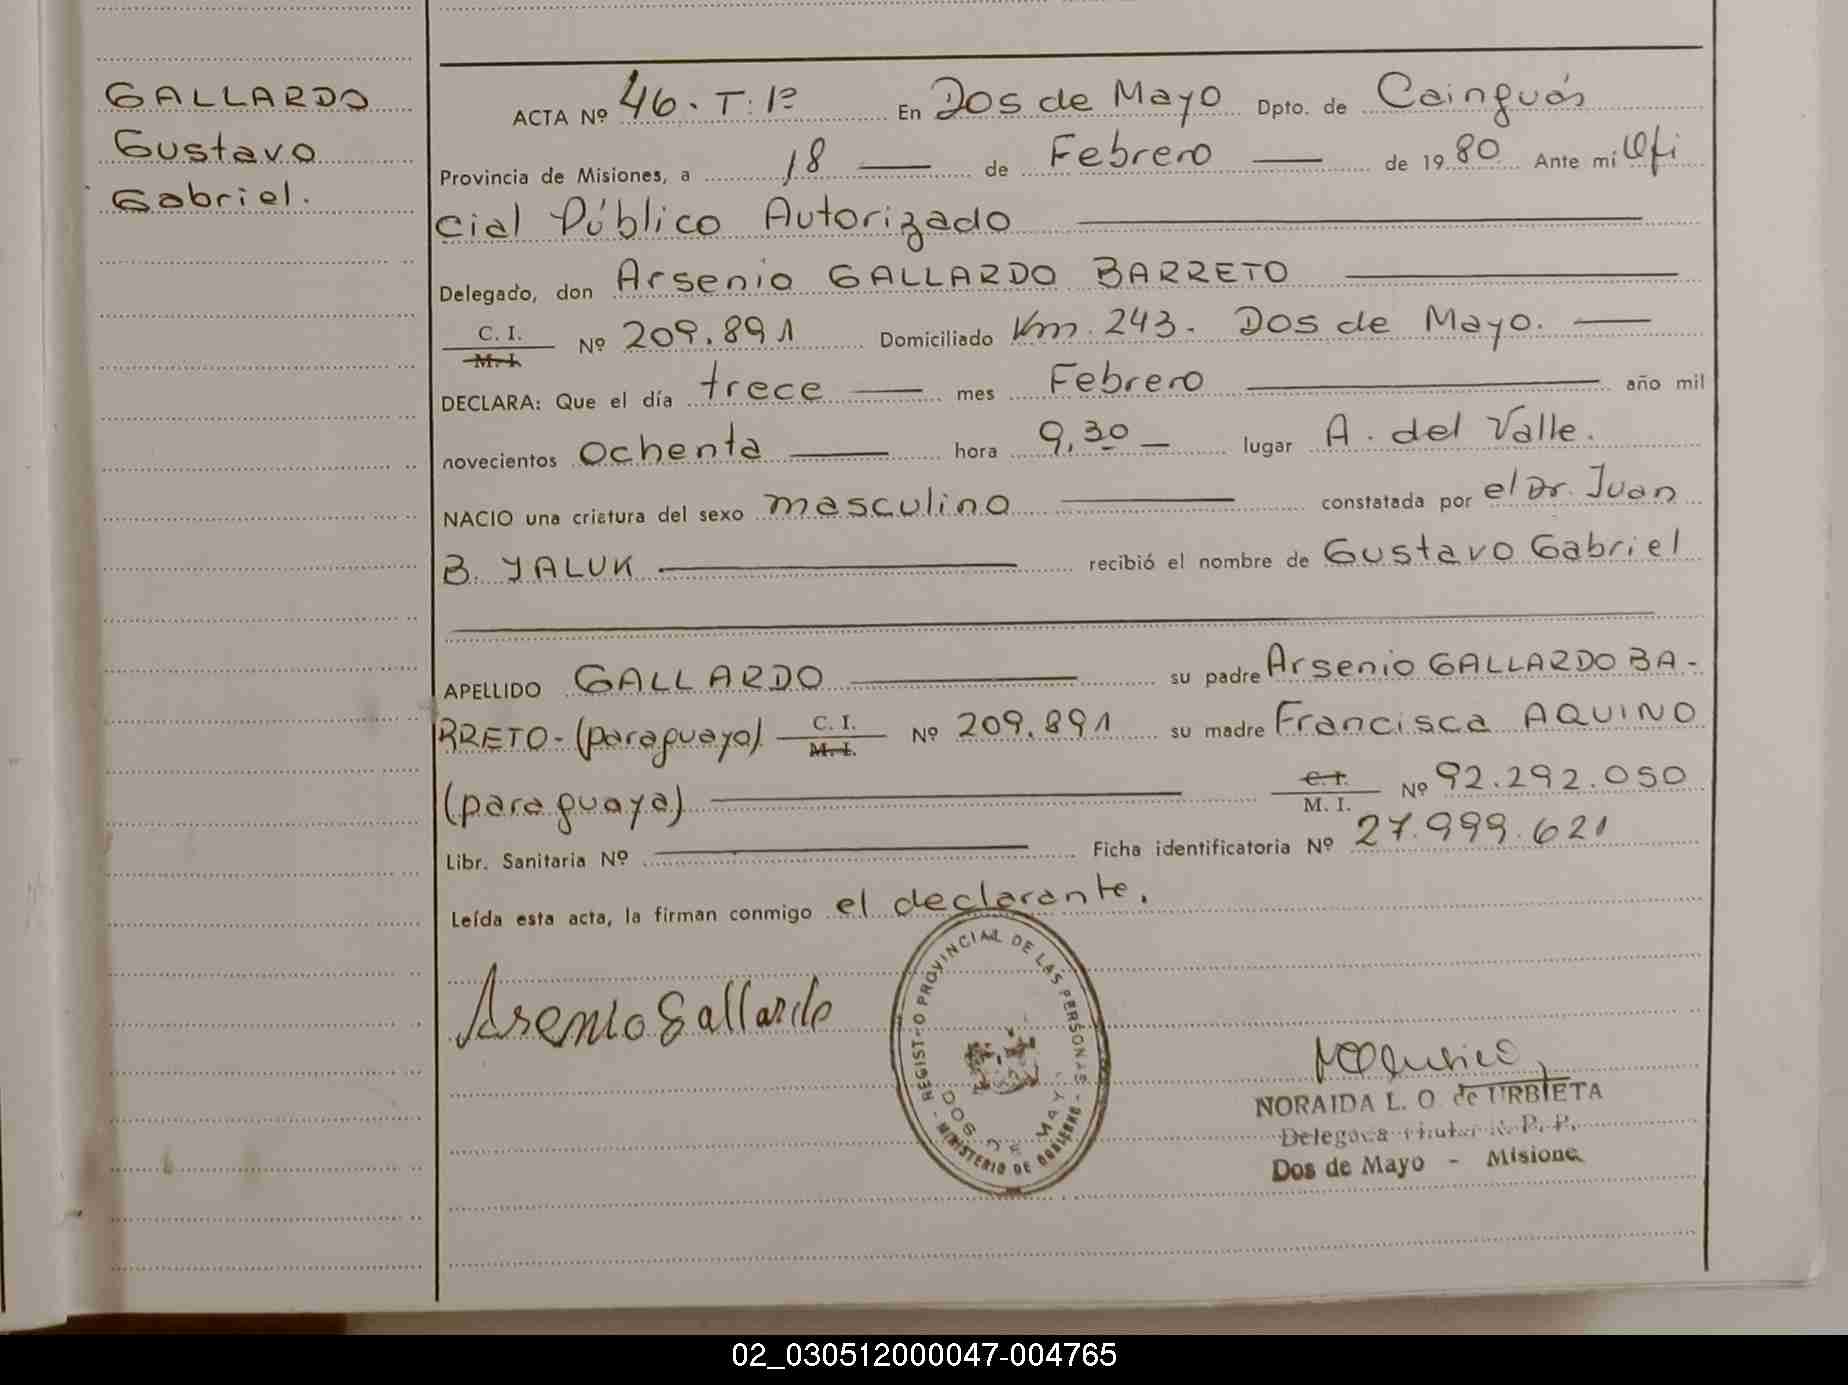 GALLARDO
Gustavo
Gabriel.
ACTA Nº 46. T: 1º En Dos de Mayo Dpto. de Cainguás
Provincia de Misiones, a 18 de Febrero de 1980 Ante mi Ofi
cial Público Autorizado
Delegado, don Arsenio GALLARDO BARRETO
C. I.
M. I. Nº 209.891 Domiciliado Km. 243. Dos de Mayo.
DECLARA: Que el día trece mes Febrero año mil
novecientos ochenta hora 9,30 lugar A. del Valle.
NACIO una criatura del sexo masculino constatada por el Dr. Juan
B. YALUK recibió el nombre de Gustavo Gabriel
APELLIDO GALLARDO su padre Arsenio GALLARDO BA-
RRETO-(paraguayo) C. I. Nº 209.891 su madre Francisca AQUINO
M. I.
(paraguaya) C. I. Nº 92.292.050
M. I.
Libr. Sanitaria Nº Ficha identificatoria Nº 27.999.621
Leída esta acta, la firman conmigo el declarante.
Arsenio Gallardo
REGISTRO PROVINCIAL DE LAS PERSONAS - MINISTERIO DE GOBIERNO -
DOS DE MAYO
NORAIDA L. O. de URBIETA
Delegada Titular R. P. P.
Dos de Mayo - Misiones
02_030512000047-004765